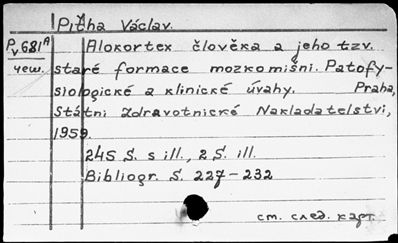 Pitha Václav.
P 681 A
v
чеш.
Alokortex člověka a jeho tzv.
staré formace mozkomíšní. Patofy-
siologické a klinické úvahy. Praha,
Státní Zdravotnické Nakladatelství,
1959.
245 S. s ill., 2 S. ill.
Bibliogr. S. 227-232
ст. след. карт.